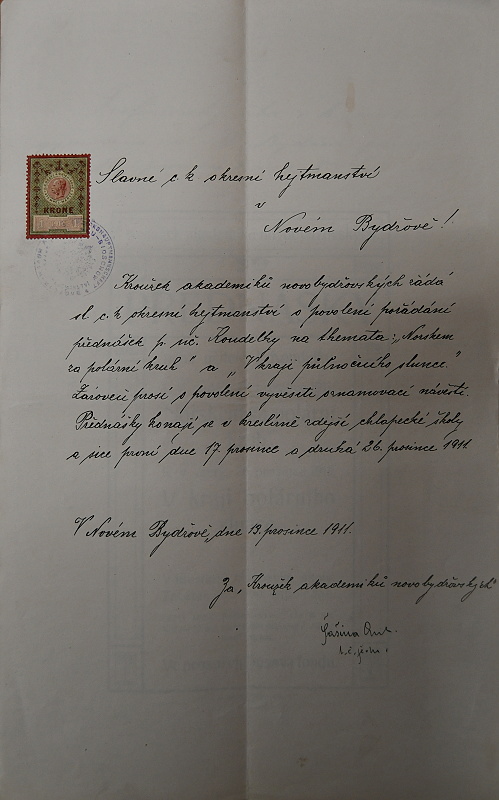 Slavné c. k. okresní hejtmanství
v
Novém Bydžově!
KRONE
Kroužek akademiků novobydžovských žádá
sl. c. k. okresní hejtmanství o povolení pořádání
přednášek p. uč. Koudelky na themata: „Norskem
za polární kruh" a „V kraji půlnočního slunce."
Zároveň prosí o povolení vyvěsiti oznamovací návěstí.
Přednášky konají se v kreslírně zdejší chlapecké školy
a sice první dne 17. prosince a druhá 26. prosince 1911.
V Novém Bydžově, dne 13. prosince 1911.
Za „Kroužek akademiků novobydžovských"
Ant.